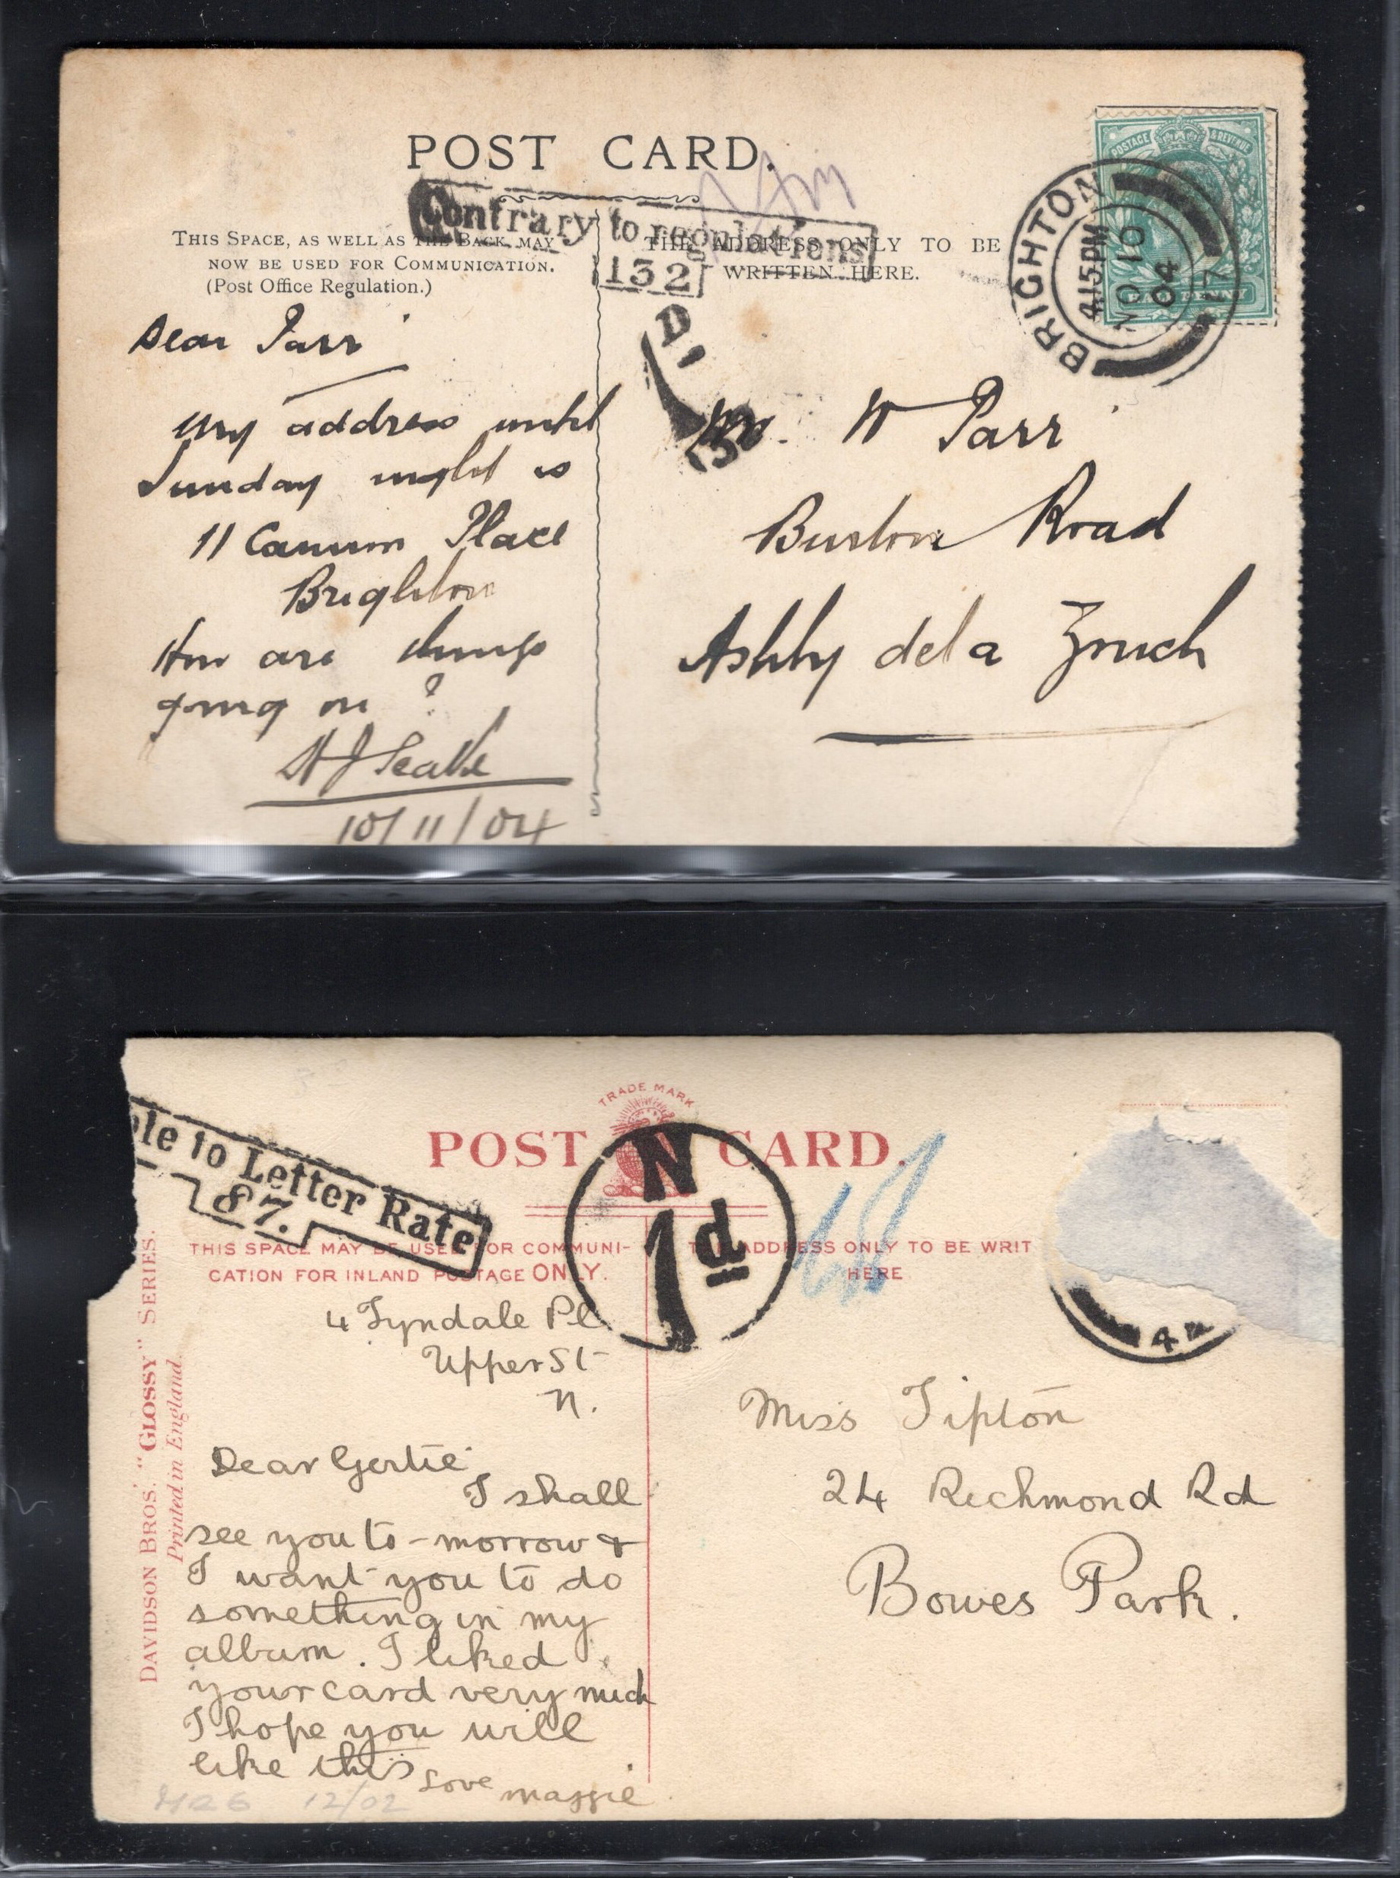 POST CARD.
Contrary to regulations
132
THIS SPACE, AS WELL AS THE BACK, MAY
NOW BE USED FOR COMMUNICATION.
(Post Office Regulation.)
THE ADDRESS ONLY TO BE
WRITTEN HERE.
BRIGHTON
4 15 PM
NO 10
04
17
POSTAGE & REVENUE
D
Dear Parr
My address until
Sunday night is
11 Cannon Place
Brighton
How are things
going on ?
10/11/04
Mr. W Parr
Burton Road
Ashby de la Zouch
ble to Letter Rate
87.
TRADE MARK
POST CARD.
N
1d
THIS SPACE MAY BE USED FOR COMMUNI-
CATION FOR INLAND POSTAGE ONLY.
THE ADDRESS ONLY TO BE WRIT
HERE
DAVIDSON BROS'. "GLOSSY" SERIES.
Printed in England.
4
4 Tyndale Pl
Upper St
N.
Dear Gertie
I shall
see you to-morrow &
I want you to do
something in my
album. I liked
your card very much
I hope you will
like this
Love Maggie
12/02
Miss Tipton
24 Richmond Rd
Bowes Park.